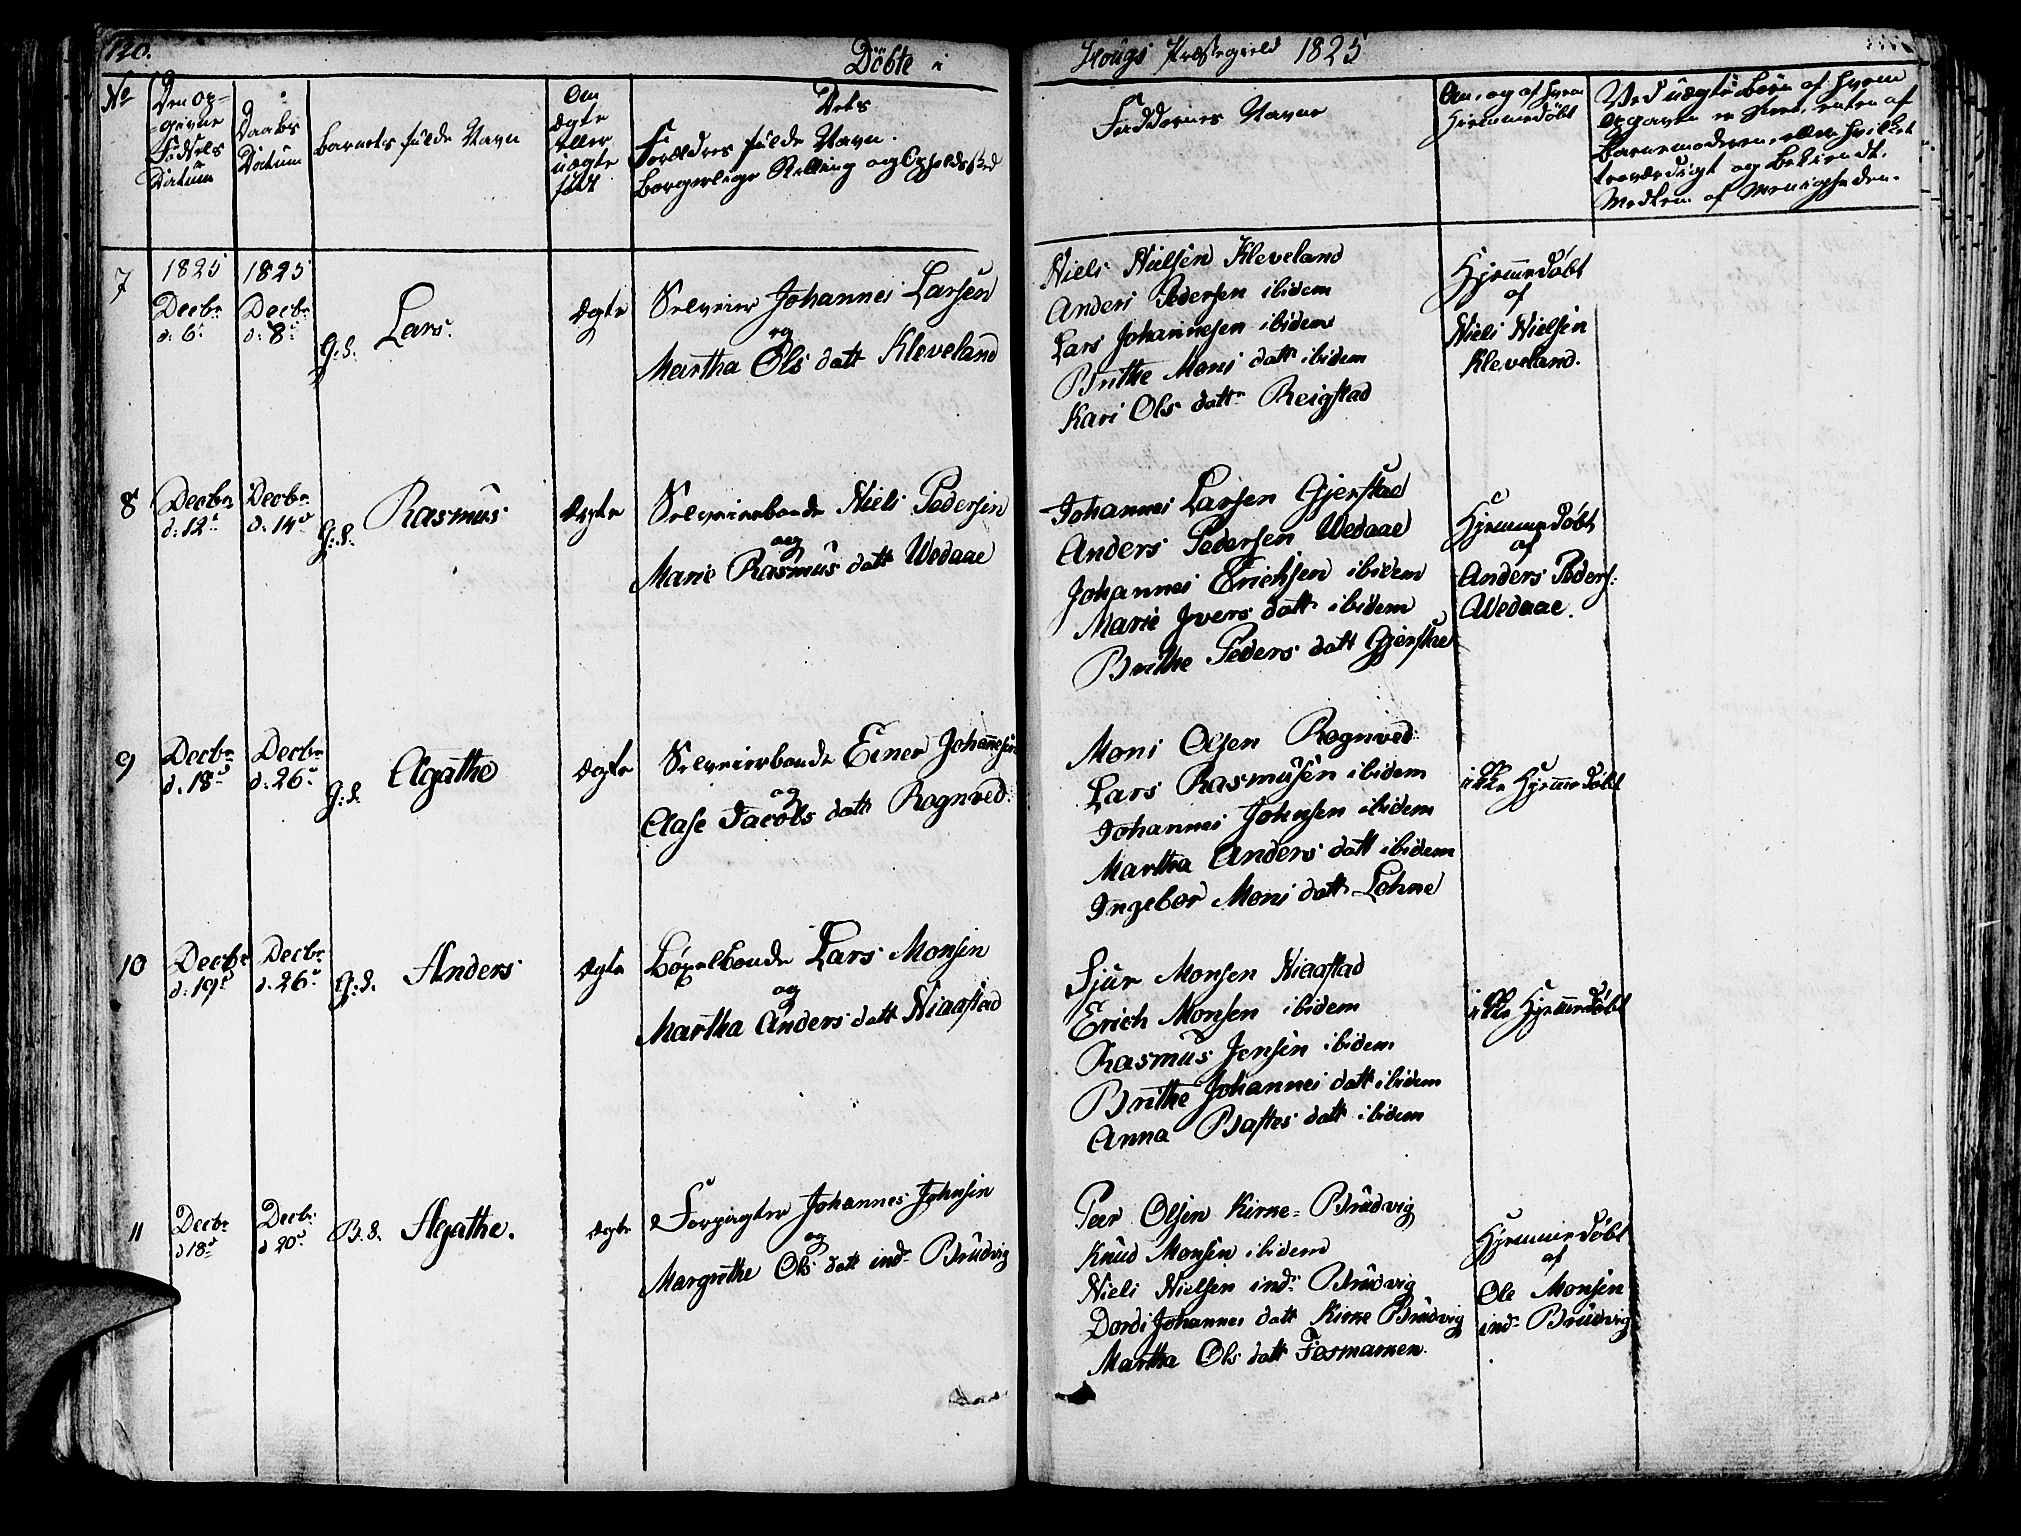 120.
Döbte i Hougs Præstegield 1825
No
Den op-
givne
Fødsels
Datum
Daabs
Datum
Barnets fulde Navn
Om
ægte
eller
uægte
født
Dets
Forældres fulde Navn.
borgerlige Stilling og Opholdsted
Faddernes Navne
Om, og af hvem
Hiemmedøbt
Ved uægte Børn af hvem
Opgaven er skeet, enten af
Barnemoderen, eller hvilket
troværdigt og bekiendt,
Medlem af Menigheden.
7
1825
Decbr
d. 6te
1825
Decbr
d: 8de
G: S.
Lars.
ægte
Selveier Johannes Larsen
og
Martha Ols datt Kleveland
Niels Nielsen Kleveland
Anders Pedersen ibidem
Lars Johannesen ibidem
Brithe Mons datt ibidem
Kari Ols datt Reigstad
Hjemmedøbt
af
Niels Nielsen
Kleveland.
8
Decbr
d: 12te
Decbr
d: 14de
G: S.
Rasmus
ægte
Selveierbonde Niels Pedersen
og
Marie Rasmus datt Wedaae
Johannes Larsen Gjerstad
Anders Pedersen Wedaae
Johannes Erichsen ibidem
Marie Ivers datt ibidem
Brithe Peders datt Gjerstad
Hjemmedøbt
af
Anders Peders:
Wedaae.
9
Decbr
d. 18de
Decbr
d: 26de
G: S.
Agathe
ægte
Selveierbonde Einer Johannesen
og
Aase Jacobs datt Rognved.
Mons Olsen Rognved
Lars Rasmusen ibidem
Johannes Johnsen ibidem
Martha Anders datt ibidem
Ingebor Mons datt Lohne
ikke Hjemmedøbt
10
Decbr
d. 19de
Decbr
d. 26de
G: S.
Anders
ægte
Bøxelbonde Lars Monsen
og
Martha Anders datt Niaastad
Sjur Monsen Niaastad
Erich Monsen ibidem
Rasmus Jensen ibidem
Brithe Johannes datt ibidem
Anna Bastes datt ibidem
ikke Hjemmedøbt
11
Decbr
d 18de
Decbr
d 20de
B. S.
Agathe.
ægte
Forpagter Johannes Johnsen
og
Margrethe Ols datt indr Brudvig
Peer Olsen Kirke= Brudvig
Knud Monsen ibidem
Niels Nielsen indr Brudvig
Dordi Johannes datt Kirke Brudvig
Martha Ols datt Fosmarnen.
Hjemmedøbt
af
Ole Monsen
indr Brudvig